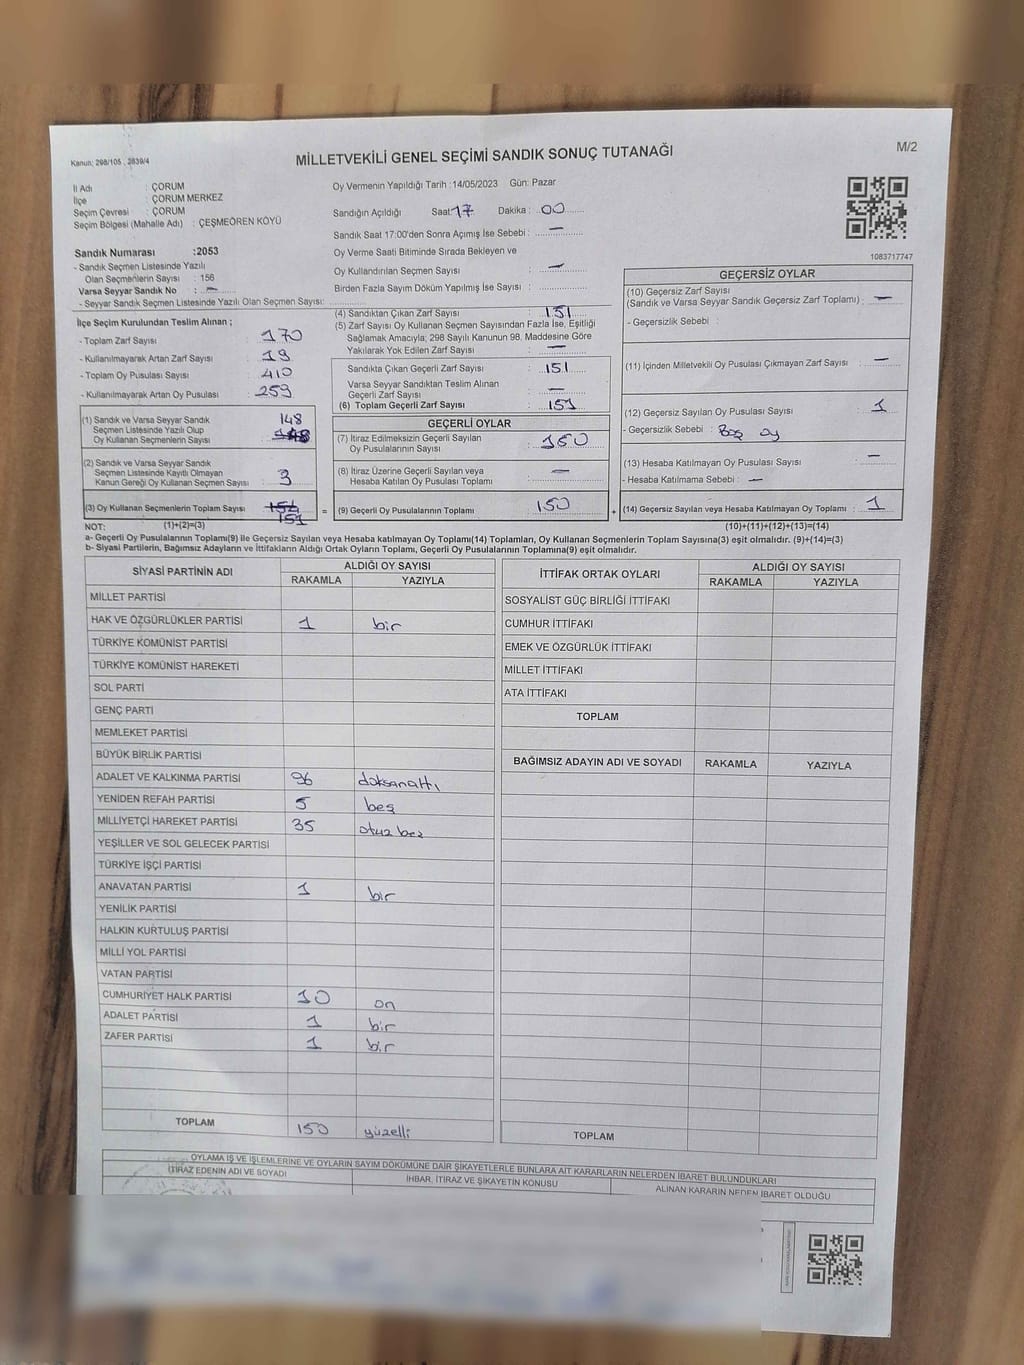 Kanun: 298/105 , 2839/4
MİLLETVEKİLİ GENEL SEÇİMİ SANDIK SONUÇ TUTANAĞI
M/2
İl Adı : ÇORUM
İlçe : ÇORUM MERKEZ
Seçim Çevresi : ÇORUM
Seçim Bölgesi (Mahalle Adı) : ÇEŞMEÖREN KÖYÜ
Sandık Numarası :2053
- Sandık Seçmen Listesinde Yazılı
Olan Seçmenlerin Sayısı : 156
Varsa Seyyar Sandık No : —
- Seyyar Sandık Seçmen Listesinde Yazılı Olan Seçmen Sayısı:
Oy Vermenin Yapıldığı Tarih :14/05/2023 Gün: Pazar
Sandığın Açıldığı Saat: 17 Dakika : 00
Sandık Saat 17:00'den Sonra Açımış İse Sebebi : —
Oy Verme Saati Bitiminde Sırada Bekleyen ve
Oy Kullandırılan Seçmen Sayısı : —
Birden Fazla Sayım Döküm Yapılmış İse Sayısı :
1083717747
İlçe Seçim Kurulundan Teslim Alınan ;
- Toplam Zarf Sayısı : 170
- Kullanılmayarak Artan Zarf Sayısı : 19
- Toplam Oy Pusulası Sayısı : 410
- Kullanılmayarak Artan Oy Pusulası : 259
(1) Sandık ve Varsa Seyyar Sandık 148
Seçmen Listesinde Yazılı Olup
Oy Kullanan Seçmenlerin Sayısı : 148
(2) Sandık ve Varsa Seyyar Sandık
Seçmen Listesinde Kayıtlı Olmayan
Kanun Gereği Oy Kullanan Seçmen Sayısı : 3
(3) Oy Kullanan Seçmenlerin Toplam Sayısı : 151
151
(4) Sandıktan Çıkan Zarf Sayısı : 151
(5) Zarf Sayısı Oy Kullanan Seçmen Sayısından Fazla İse, Eşitliği
Sağlamak Amacıyla; 298 Sayılı Kanunun 98. Maddesine Göre
Yakılarak Yok Edilen Zarf Sayısı : —
Sandıkta Çıkan Geçerli Zarf Sayısı : 151
Varsa Seyyar Sandıktan Teslim Alınan
Geçerli Zarf Sayısı : —
(6) Toplam Geçerli Zarf Sayısı : 151
GEÇERLİ OYLAR
(7) İtiraz Edilmeksizin Geçerli Sayılan
Oy Pusulalarının Sayısı : 150
(8) İtiraz Üzerine Geçerli Sayılan veya
Hesaba Katılan Oy Pusulası Toplamı : —
= (9) Geçerli Oy Pusulalarının Toplamı : 150
GEÇERSİZ OYLAR
(10) Geçersiz Zarf Sayısı
(Sandık ve Varsa Seyyar Sandık Geçersiz Zarf Toplamı) : —
- Geçersizlik Sebebi :
(11) İçinden Milletvekili Oy Pusulası Çıkmayan Zarf Sayısı : —
(12) Geçersiz Sayılan Oy Pusulası Sayısı : 1
- Geçersizlik Sebebi : Boş oy
(13) Hesaba Katılmayan Oy Pusulası Sayısı : —
- Hesaba Katılmama Sebebi : —
+ (14) Geçersiz Sayılan veya Hesaba Katılmayan Oy Toplamı : 1
NOT: (1)+(2)=(3) (10)+(11)+(12)+(13)=(14)
a- Geçerli Oy Pusulalarının Toplamı(9) ile Geçersiz Sayılan veya Hesaba katılmayan Oy Toplamı(14) Toplamları, Oy Kullanan Seçmenlerin Toplam Sayısına(3) eşit olmalıdır. (9)+(14)=(3)
b- Siyasi Partilerin, Bağımsız Adayların ve İttifakların Aldığı Ortak Oyların Toplamı, Geçerli Oy Pusulalarının Toplamına(9) eşit olmalıdır.
SİYASİ PARTİNİN ADI ALDIĞI OY SAYISI
RAKAMLA YAZIYLA
MİLLET PARTİSİ
HAK VE ÖZGÜRLÜKLER PARTİSİ 1 bir
TÜRKİYE KOMÜNİST PARTİSİ
TÜRKİYE KOMÜNİST HAREKETİ
SOL PARTİ
GENÇ PARTİ
MEMLEKET PARTİSİ
BÜYÜK BİRLİK PARTİSİ
ADALET VE KALKINMA PARTİSİ 96 doksanaltı
YENİDEN REFAH PARTİSİ 5 beş
MİLLİYETÇİ HAREKET PARTİSİ 35 otuz beş
YEŞİLLER VE SOL GELECEK PARTİSİ
TÜRKİYE İŞÇİ PARTİSİ
ANAVATAN PARTİSİ 1 bir
YENİLİK PARTİSİ
HALKIN KURTULUŞ PARTİSİ
MİLLİ YOL PARTİSİ
VATAN PARTİSİ
CUMHURİYET HALK PARTİSİ 10 on
ADALET PARTİSİ 1 bir
ZAFER PARTİSİ 1 bir
TOPLAM 150 yüzelli
İTTİFAK ORTAK OYLARI ALDIĞI OY SAYISI
RAKAMLA YAZIYLA
SOSYALİST GÜÇ BİRLİĞİ İTTİFAKI
CUMHUR İTTİFAKI
EMEK VE ÖZGÜRLÜK İTTİFAKI
MİLLET İTTİFAKI
ATA İTTİFAKI
TOPLAM
BAĞIMSIZ ADAYIN ADI VE SOYADI RAKAMLA YAZIYLA
TOPLAM
OYLAMA İŞ VE İŞLEMLERİNE VE OYLARIN SAYIM DÖKÜMÜNE DAİR ŞİKAYETLERLE BUNLARA AİT KARARLARIN NELERDEN İBARET BULUNDUKLARI
İTİRAZ EDENİN ADI VE SOYADI İHBAR, İTİRAZ VE ŞİKAYETİN KONUSU ALINAN KARARIN NEDEN İBARET OLDUĞU